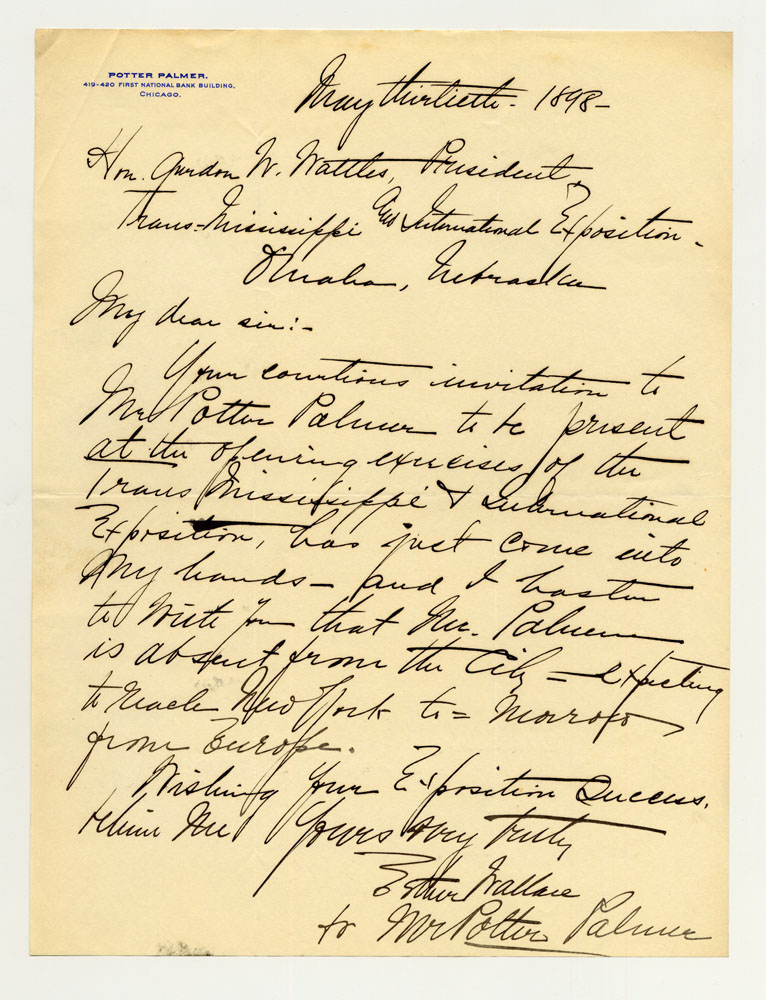 POTTER PALMER.
419-420 FIRST NATIONAL BANK BUILDING,
CHICAGO.
May thirtieth - 1898 -
Hon. Gurdon W. Wattles, President,
Trans-Mississippi and International Exposition -
Omaha, Nebraska
My dear sir:-
Your courtious invitation to
Mr Potter Palmer to be present
at the opening exercises of the
Trans Mississippi & International
Exposition, has just come into
my hands - and I hasten
to write you that Mr. Palmer
is absent from the City - expecting
to reach New York to=morrow
from Europe.
Wishing your Exposition success.
Yours very truly
Esther Wallace
to Mr Potter Palmer